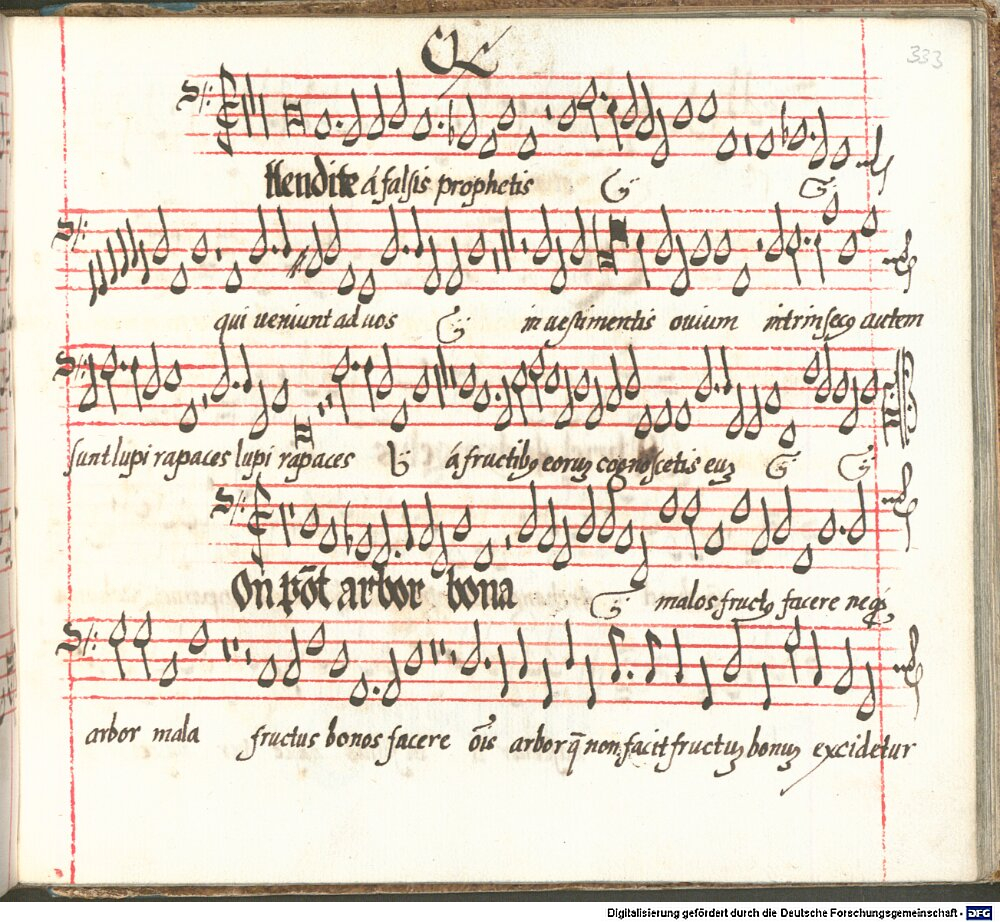 333
ttendite á falsis prophetis
qui veniunt ad vos in vestimentis ovium intrinsecꝰ autem
sunt lupi rapaces lupi rapaces á fructibꝰ eoruʒ cognoscetis eoʒ
On põt arbor bona malos fructꝰ facere neqȝ
arbor mala fructus bonos facere oı̃s arbor q̃ non facit fructuʒ bonuʒ excidetur
Digitalisierung gefördert durch die Deutsche Forschungsgemeinschaft - DFG